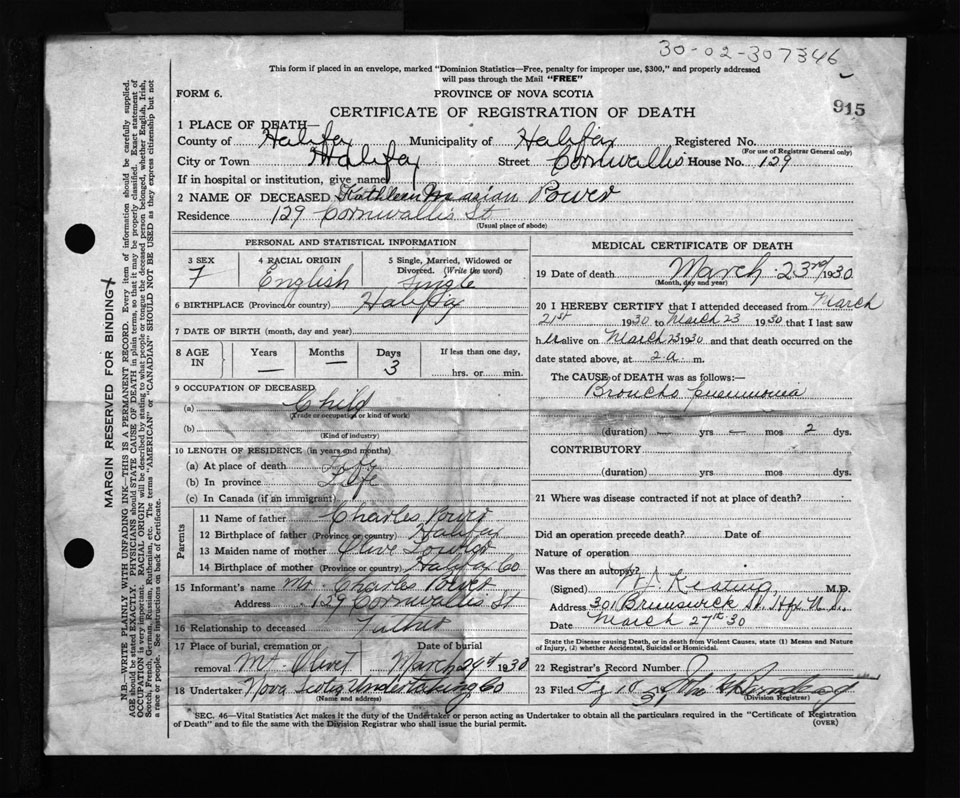 30-02-307346
This form if placed in an envelope, marked "Dominion Statistics—Free, penalty for improper use, $300," and properly addressed
will pass through the Mail "FREE"
915
FORM 6.
PROVINCE OF NOVA SCOTIA
CERTIFICATE OF REGISTRATION OF DEATH
1 PLACE OF DEATH—
County of Halifax Municipality of Halifax Registered No.
(For use of Registrar General only)
City or Town Halifax Street Cornwallis House No. 129
If in hospital or institution, give name
2 NAME OF DECEASED Kathleen Marian Power
Residence 129 Cornwallis St
(Usual place of abode)
PERSONAL AND STATISTICAL INFORMATION
3 SEX 4 RACIAL ORIGIN 5 Single, Married, Widowed or
Divorced. (Write the word)
F English Single
6 BIRTHPLACE (Province or country) Halifax
7 DATE OF BIRTH (month, day and year)
8 AGE IN Years Months Days If less than one day,
— — 3 hrs. or min.
9 OCCUPATION OF DECEASED
(a) Child
(Trade or occupation or kind of work)
(b)
(Kind of industry)
10 LENGTH OF RESIDENCE (in years and months)
(a) At place of death Life
(b) In province Life
(c) In Canada (if an immigrant)
Parents
11 Name of father Charles Power
12 Birthplace of father (Province or country) Halifax
13 Maiden name of mother Olive
14 Birthplace of mother (Province or country) Halifax Co
15 Informant's name Mr. Charles Power
Address 129 Cornwallis St
16 Relationship to deceased Father
17 Place of burial, cremation or Date of burial
removal Mt. Olivet March 24th 1930
18 Undertaker Nova Scotia Undertaking Co
(Name and address)
MEDICAL CERTIFICATE OF DEATH
19 Date of death March 23rd 1930
(Month, day and year)
20 I HEREBY CERTIFY that I attended deceased from March
21st 1930 to March 23 1930 that I last saw
her alive on March 23 1930 and that death occurred on the
date stated above, at 2 a. m.
The CAUSE OF DEATH was as follows:—
Broncho pneumonia
(duration) — yrs — mos 2 dys.
CONTRIBUTORY
(duration) yrs. mos. dys.
21 Where was disease contracted if not at place of death?
Did an operation precede death? Date of
Nature of operation
Was there an autopsy?
(Signed) Keating, M.D.
Address 301 Brunswick St. Hfx N.S.
Date March 27th 30
State the Disease causing Death, or in death from Violent Causes, state (1) Means and Nature
of Injury, (2) whether Accidental, Suicidal or Homicidal.
22 Registrar's Record Number
23 Filed John
(Division Registrar)
SEC. 46—Vital Statistics Act makes it the duty of the Undertaker or person acting as Undertaker to obtain all the particulars required in the "Certificate of Registration
of Death" and to file the same with the Division Registrar who shall issue the burial permit.
(OVER)
MARGIN RESERVED FOR BINDING
N.B.—WRITE PLAINLY WITH UNFADING INK—THIS IS A PERMANENT RECORD. Every item of information should be carefully supplied.
AGE should be stated EXACTLY. PHYSICIANS should STATE CAUSE OF DEATH in plain terms, so that it may be properly classified. Exact statement of
OCCUPATION is very important. RACIAL ORIGIN will be described by stating to what people or tongue the deceased person belonged, whether English, Irish,
Scotch, French, German, Russian, Ruthenian, etc. The terms "AMERICAN" or "CANADIAN" SHOULD NOT BE USED as they express citizenship but not
a race or people. See instructions on back of Certificate.